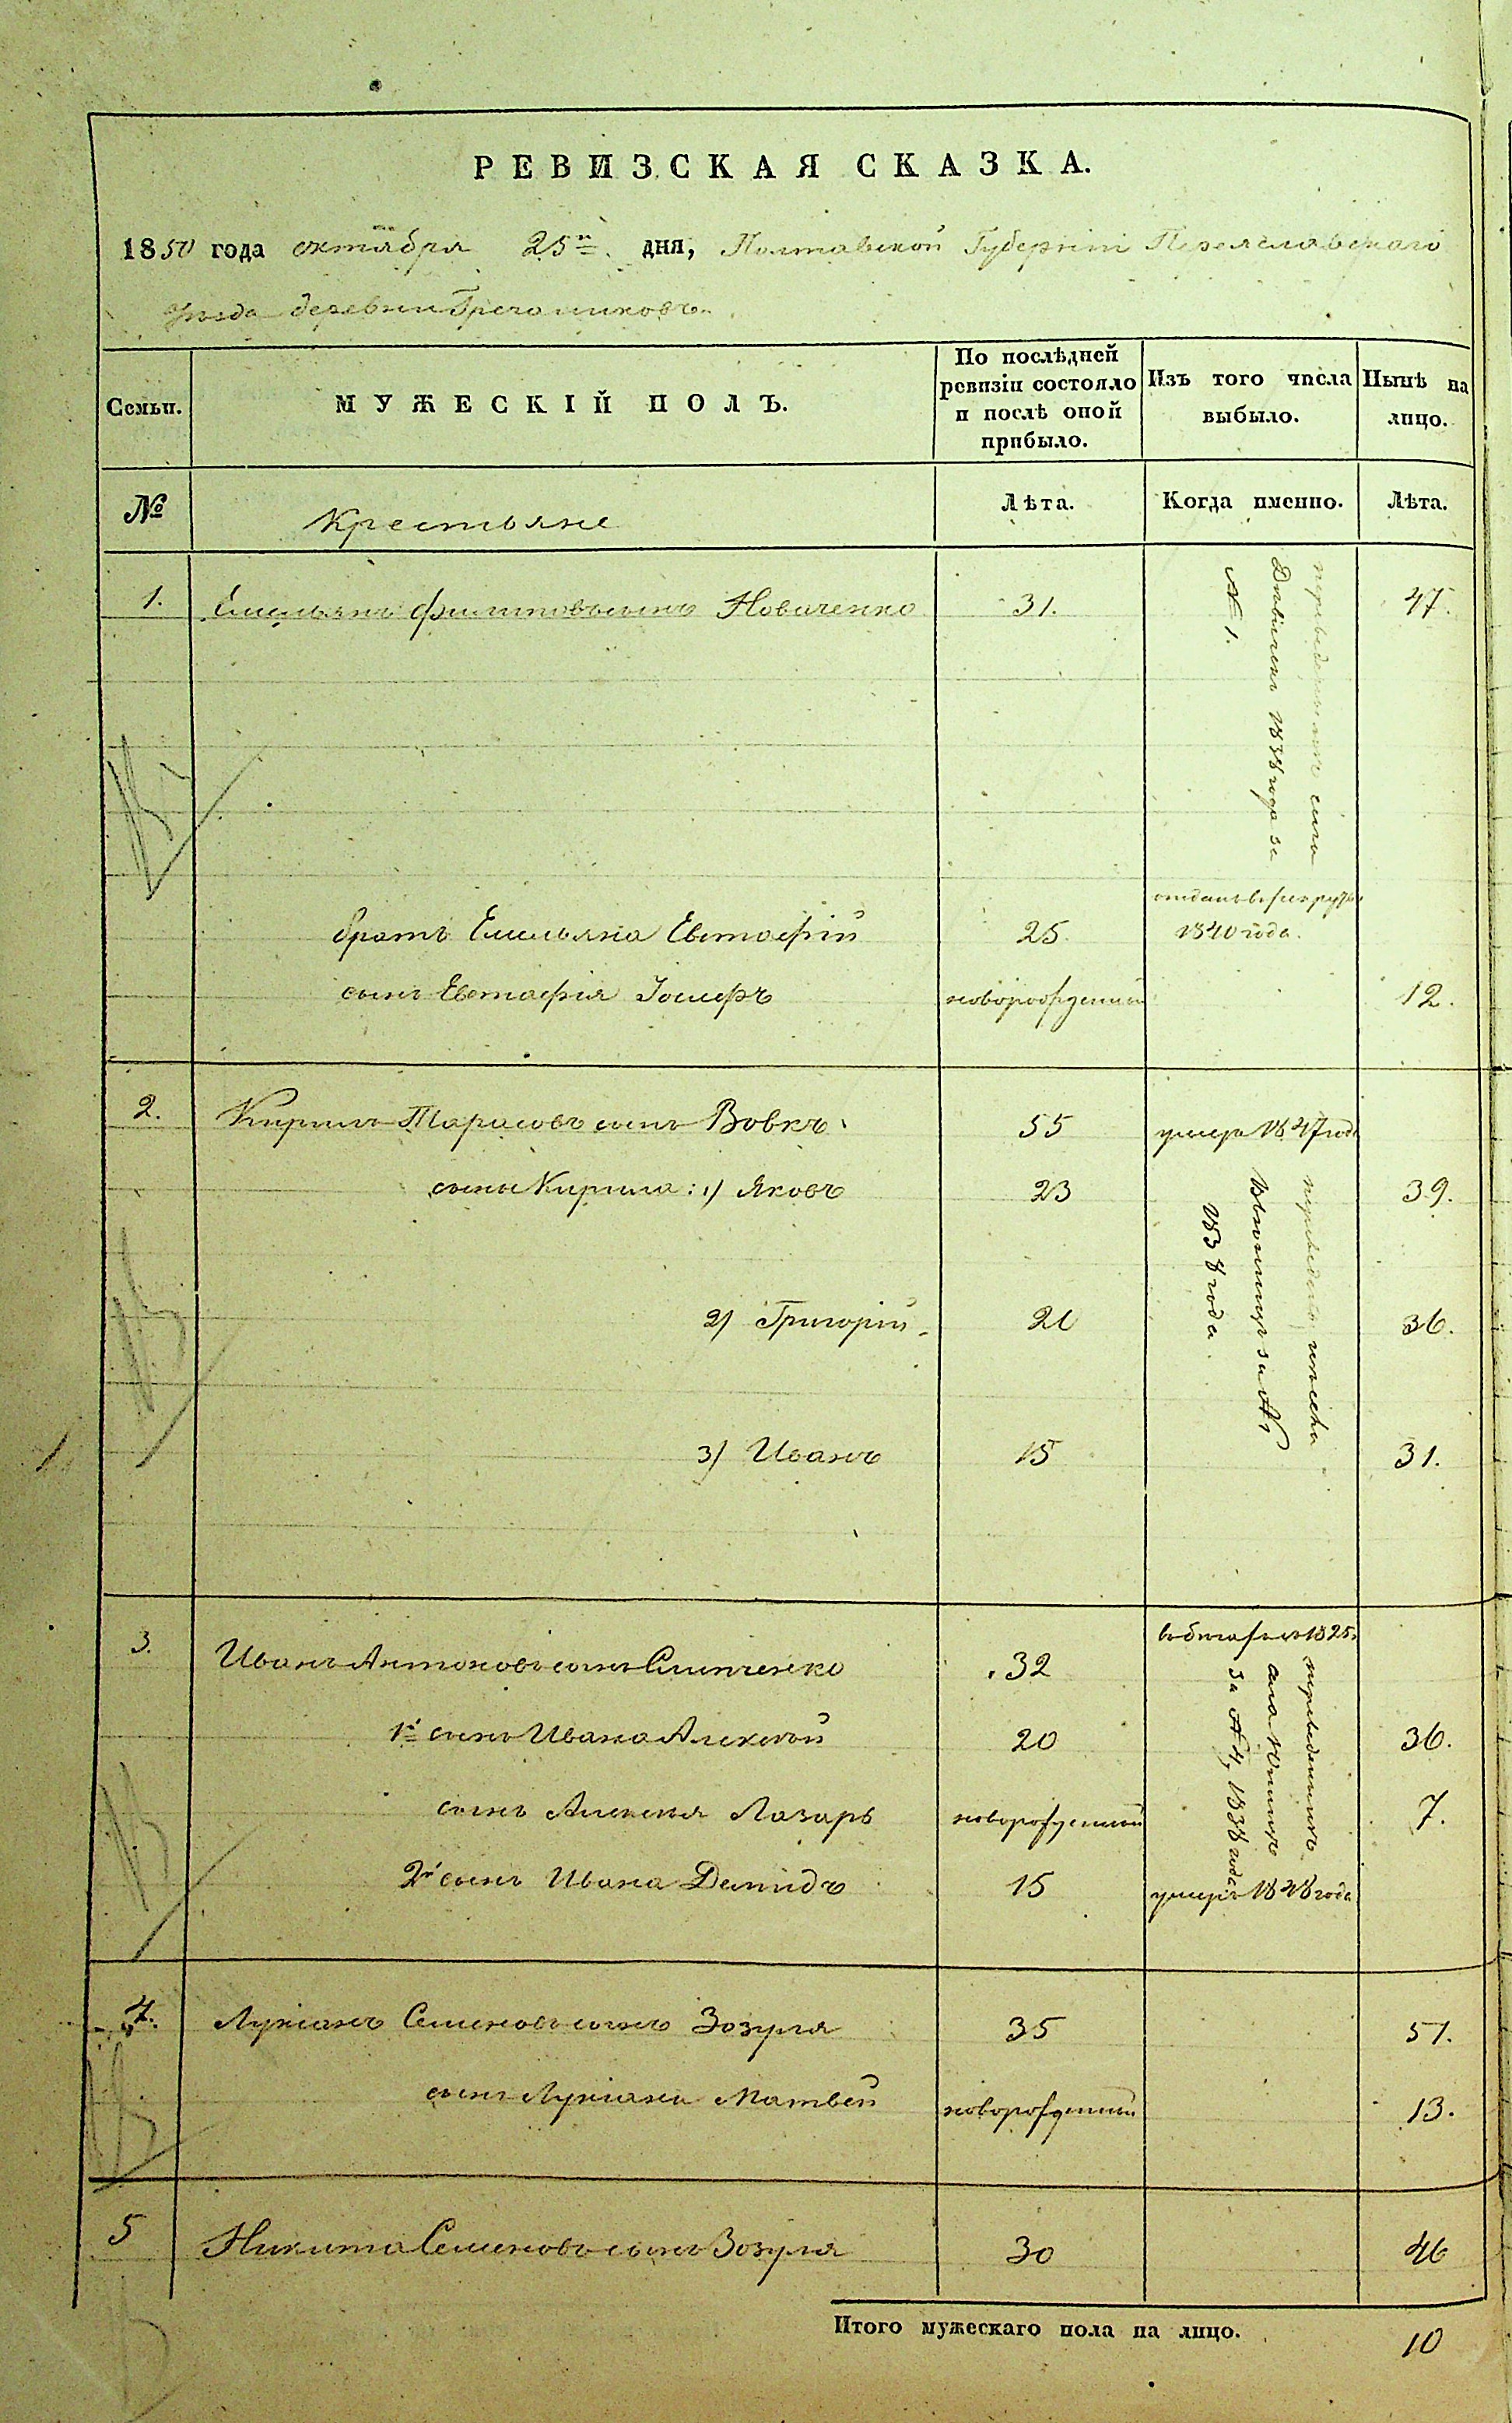 РЕВИЗСКАЯ СКАЗКА.
1850 года октября 25го дня, Полтавской Губерніи Переяславскаго
уезда деревни Гречаниковъ.
Семьи.
МУЖЕСКІЙ ПОЛЪ.
По послѣдней ревизіи состояло и послѣ оной прибыло.
Изъ того числа выбыло.
Нынѣ на лицо.
№
Крестьяне
Лѣта.
Когда именно.
Лѣта.
1. Емельянъ Филиповъ сынъ Новиченко 31. 47.
переведены изъ села
1838 года за
№ 1.
братъ Емельяна Евстафій 25. отданъ в рекруты
1840 года.
сынъ Евстафія Іосифъ новорожденный 12.
2. Кирилъ Тарасовъ сынъ Вовкъ 55 умеръ 1847 года
сыны Кирила: 1) Яковъ 23 39.
переведены изъ села
за № 1
1838 года
2) Григорій 20 36.
3) Иванъ 15 31.
3. Иванъ Антоновъ сынъ 32 1825.
1й сынъ Ивана Алексѣй 20 36.
переведенныхъ
села
за № 4, 1838 года
сынъ Алексѣя Лазарь новорожденный 7.
2й сынъ Ивана Демидъ 15 умеръ 1848 года
4. Лукіанъ Семеновъ сынъ Зозуля 35 51.
сынъ Лукіана Матвей новорожденный 13.
5 Никита Семеновъ сынъ Зозуля 30 46
Итого мужескаго пола на лицо. 10